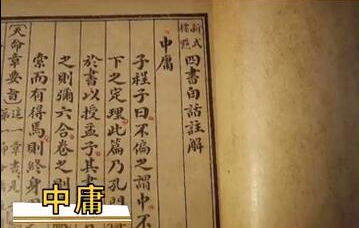 新式標點
四書白話註解
中庸
子程子曰不偏之謂中不
下之定理此篇乃孔門
於書以授孟子其書
之則彌六合卷之則
索而有得焉則終身
天命章要旨
中庸